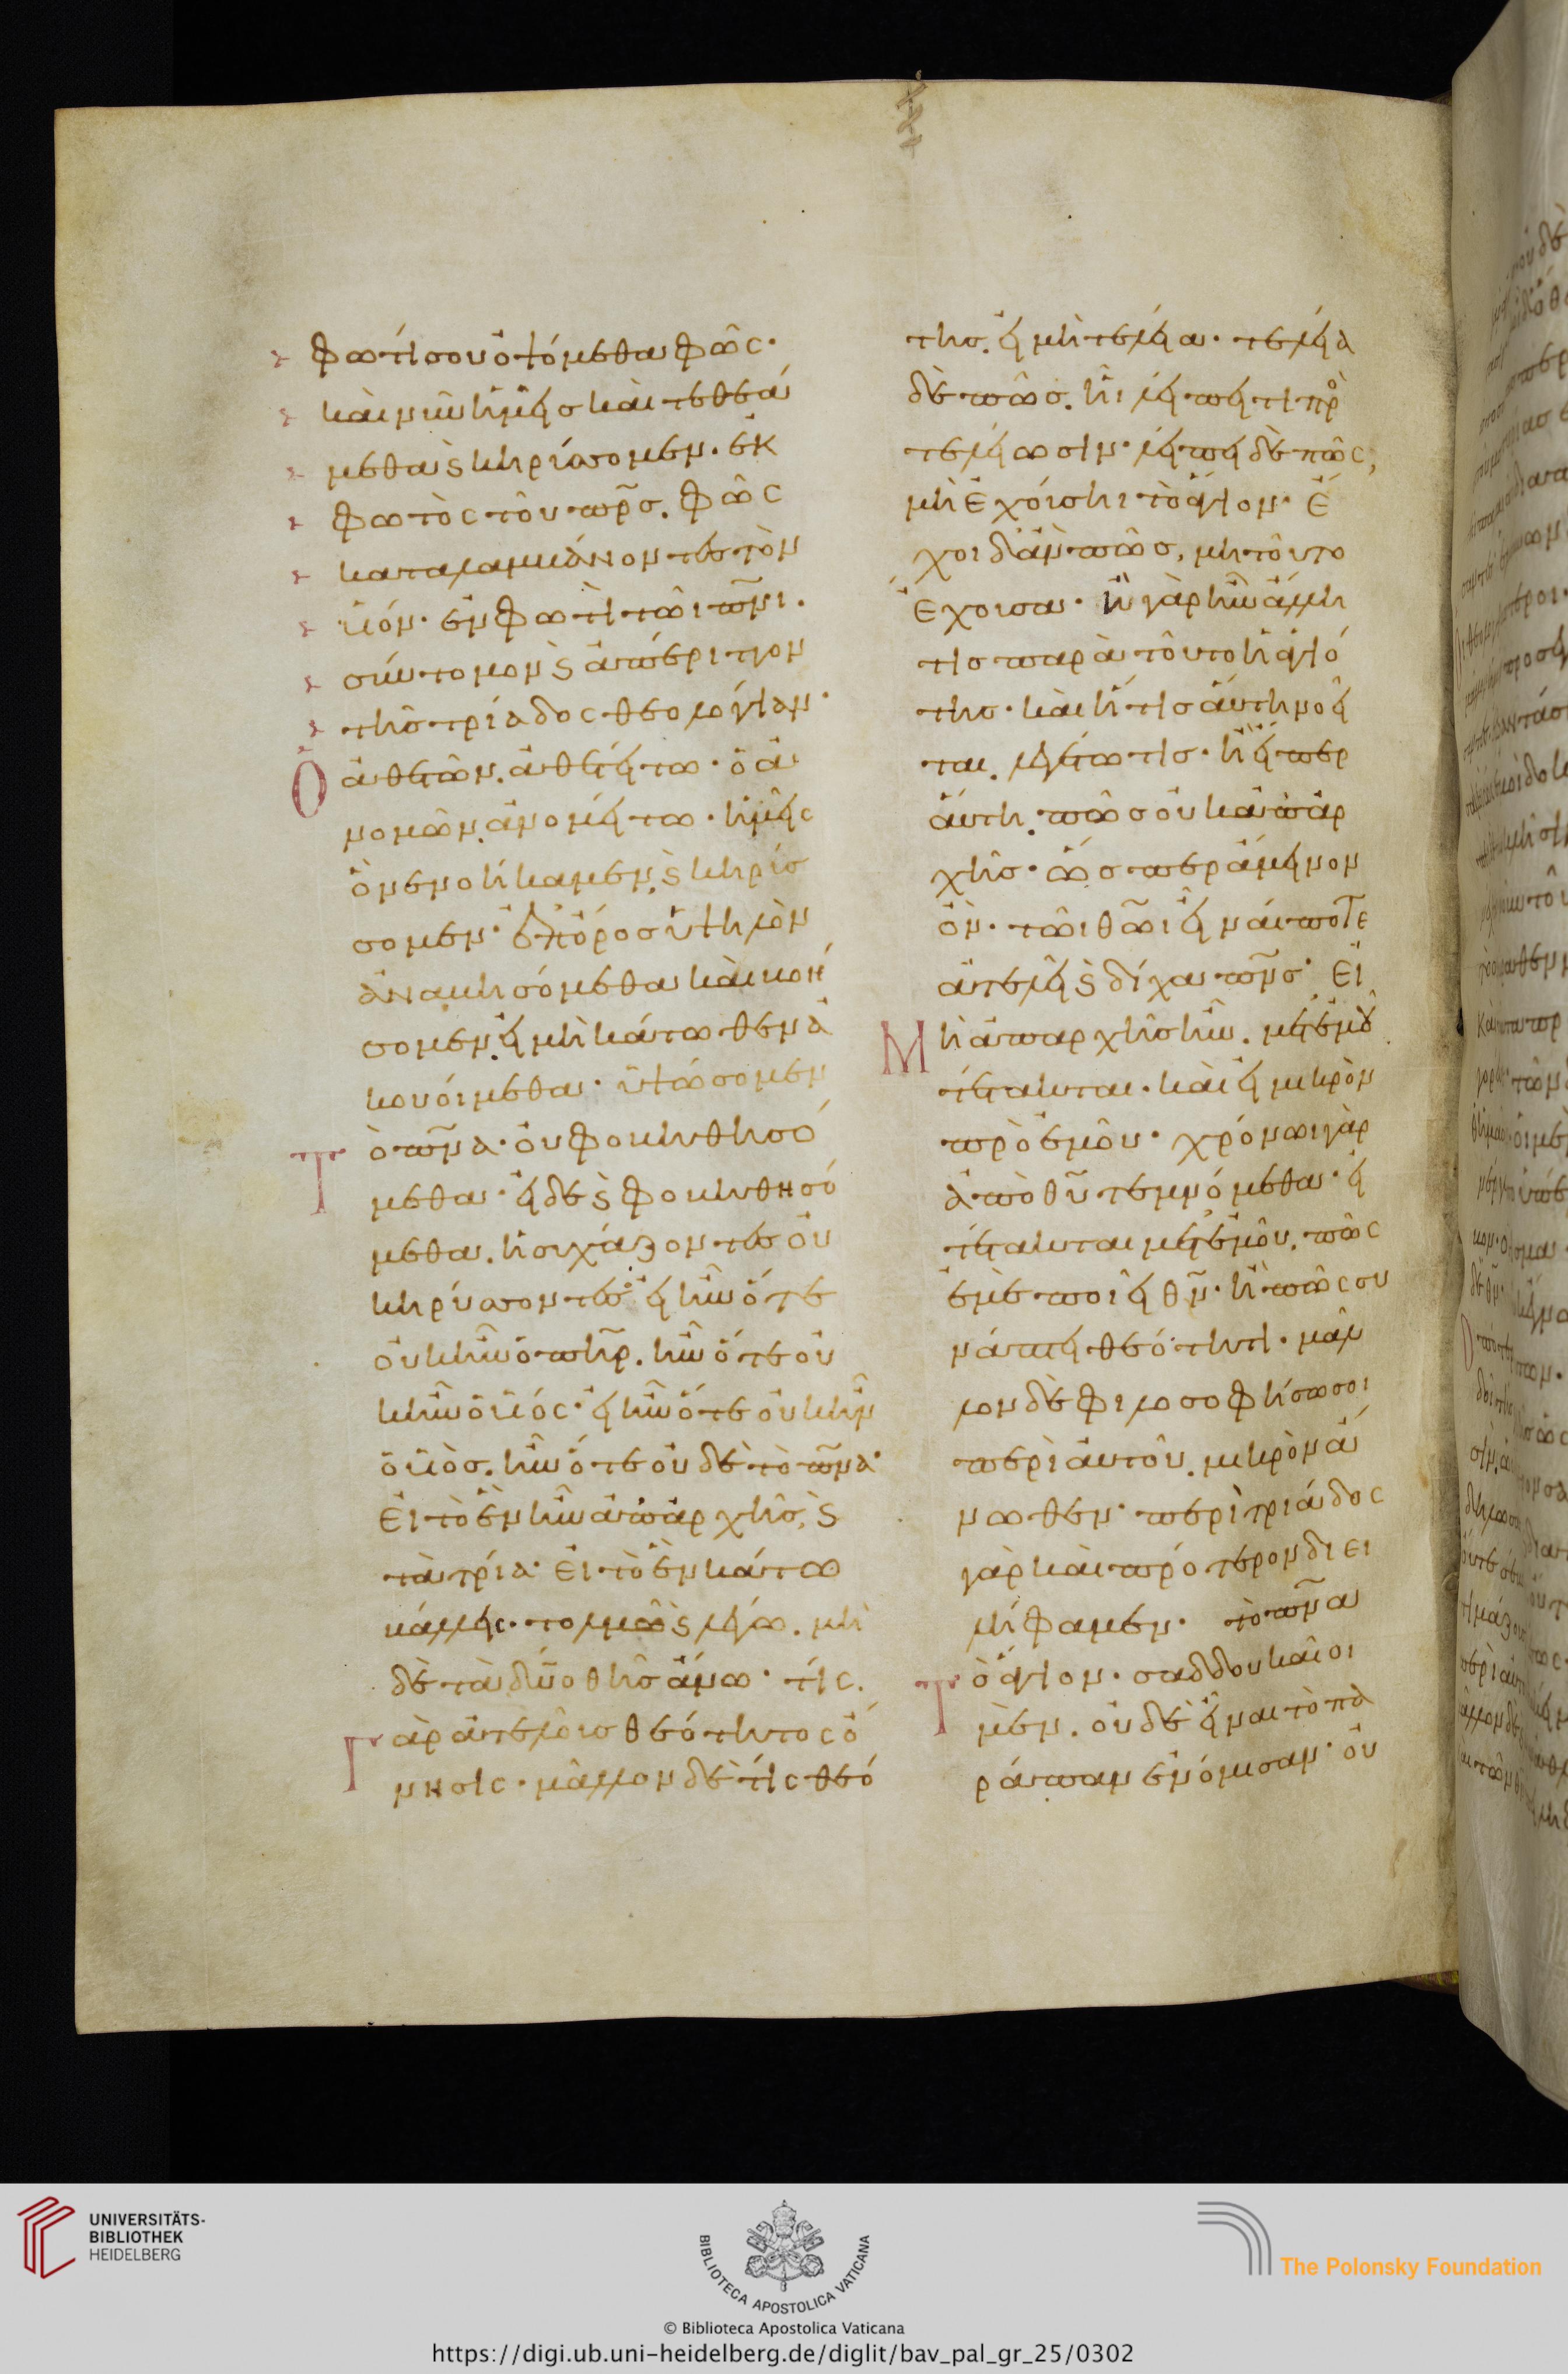 φωτί σου ὀψόμεθα φῶς·
καὶ νῦν ἡμεῖς καὶ τεθεά
μεθα ϛ κηρύσσομεν. ἐκ
φωτὸς τοῦ πρ̅σ. φῶς
καταλαμβάνοντες τὸν
υἱόν· ἐν φωτὶ τῶι πν̅ι.
σύντομον ϛ ἀπέριττον
τῆς τριάδος θεολογίαν·
Ὁ ἀθετῶν. ἀθετείτω· ὁ ἀ
νομῶν. ἀνομείτω· ἡμεῖς
ὃ νενοήκαμεν. ϛ κηρύσ
σομεν· ἐπ ὄρος ὑψηλὸν
ἀναβησόμεθα καὶ βοή
σομεν. εἰ μὴ κάτωθεν ἀ
κουοίμεθα· ὑψώσομεν
Τὸ πν̅α· οὐ φοβηθησό
μεθα· εἰ δὲ ϛ φοβηθησό
μεθα. ἡσυχάζοντες οὐ
κηρύσσοντες· εἰ ἦν ὅτε
οὐκ ἦν ὁ πηρ̅. ἦν ὅτε οὐ
κ ἦν ὁ υἱός· εἰ ἦν ὅτε οὐκ ἦν
ὁ υἱὸς. ἦν ὅτε οὐδὲ τὸ πν̅α·
Εἰ τὸ ἓν ἦν ἀπ ἀρχῆς, ϛ
τὰ τρία· Εἰ τὸ ἓν κάτω
βάλλεις· τολμῶ ϛ λέγω. μὴ
δὲ τὰ δύο θῆς ἄνω· τίς
Γὰρ ἀτελοῦς θεότητος ὄ
νησις· μᾶλλον δὲ τίς θεό
της. εἰ μὴ τελεία· τελεία
δὲ πῶς. ἧι λείπει τι πρὸ
τελείωσιν· λείπει δὲ πῶς,
μὴ ἐχούσηι τὸ ἅγιον· Ἔ
χοι δ ἂν πῶς, μὴ τοῦτο
ἔχουσα· ἢ γὰρ ἦν ἄλλη
τίς παρὰ τοῦτο ἡ ἁγιό
της· καὶ ἥτις αὕτη νοεῖ
ται. λεγέτω τίς· ἢ εἴπερ
αὕτη. πῶς οὐκ ἀπ ἀρ
χῆς· ὥσπερ ἄμεινον
ὂν· τῶι θω̅ι εἶναί ποτε
ἀτελεῖ ϛ δίχα πν̅σ· Εἰ
Μὴ ἀπαρχῆς ἦν. μετ ἐμοῦ
τέτακται. καὶ εἰ μικρὸν
πρὸ ἐμοῦ· χρόνωι γὰρ
ἀπὸ θυ̅ τεμνόμεθα· εἰ
τέτακται μετ ἐμοῦ. πῶς
ἐμὲ ποιεῖ θν̅· ἢ πῶς συ
νάπτει θεότητι· μᾶλ
λον δὲ φιλοσοφήσω σοι
περὶ αὐτοῦ. μικρὸν ἄ
νωθεν· περὶ τριάδος
γὰρ καὶ πρότερον διει
λήφαμεν· τὸ πν̅α
Τὸ ἅγιον· σαδδουκαῖοι
μὲν. οὐδὲ εἶναι τὸ πα
ράπαν ἐνόμισαν· οὐ
UNIVERSITÄTS-
BIBLIOTHEK
HEIDELBERG
BIBLIOTECA APOSTOLICA VATICANA
The Polonsky Foundation
© Biblioteca Apostolica Vaticana
https://digi.ub.uni-heidelberg.de/diglit/bav_pal_gr_25/0302